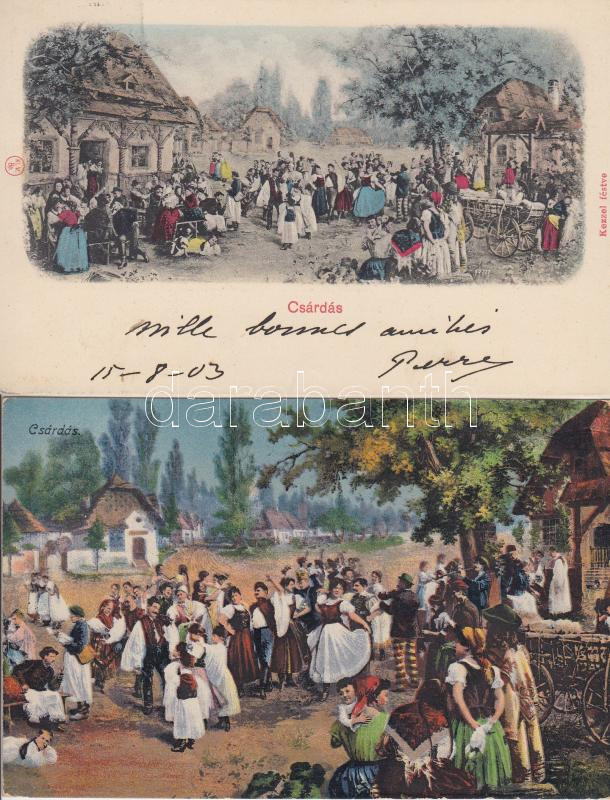 Kezzel festve
Csárdás
mille bonnes amitiés
15-8-03 Pierre
darabanth
Csárdás.